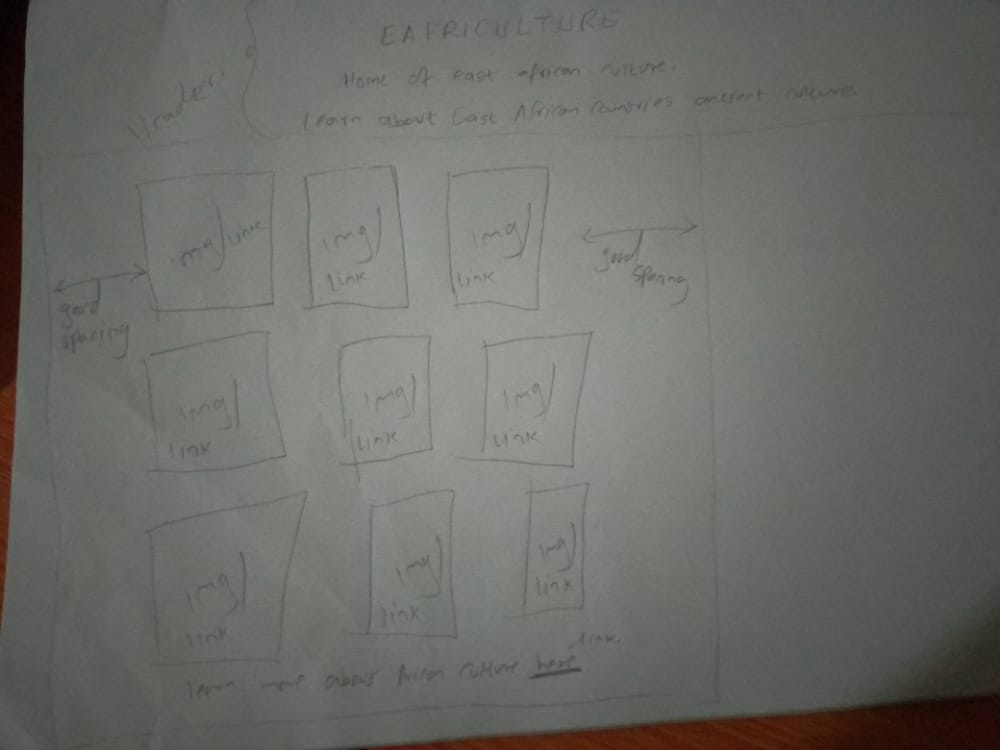 EAFRICULTURE
Home of east african culture.
Header.
learn about East African countries ancient culture.
img/link
img/
link
img/
link
good
spacing
good
spacing
img/
link
img/
link
img/
link
img/
link
img/
link
img/
link
link.
learn more about African culture here